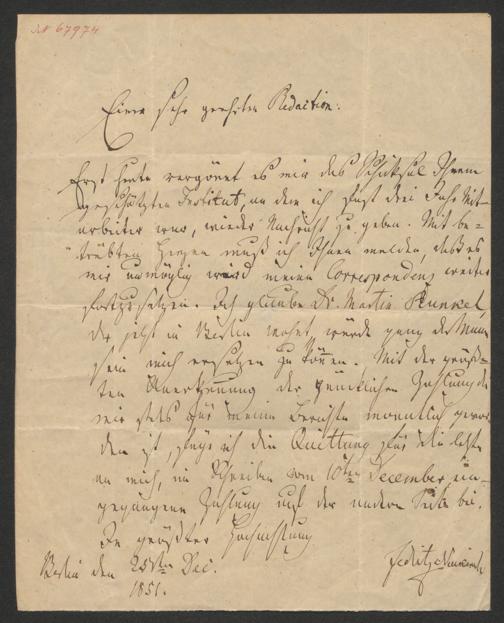 N 67974
Einer sehr geehrten Redaction:
Erst heute vergönnt es mir das Schicksal Ihrem
geschätzten Institut, an dem ich fast drei Jahr Mit-
arbeiter war, wieder Nachricht zu geben. Mit be-
trübten Herzen muß ich Ihnen melden, daß es
mir unmöglig wird meine Correspondenz weiter
fortzusetzen. Ich glaube Dr. Martin Kunkel,
der jetzt in Berlin wohnt, würde ganz der Mann
sein mich ersetzen zu können. Mit der größ-
ten Anerkennung der pünktlichen Zahlung die
mir stets für meine Berichte monatlich gewor
den ist, füge ich die Quittung für die letzte
an mich, im Schreiben vom 10ten December ein-
gegangene Zahlung auf der andern Seite bei.
In größter Hochachtung
Berlin den 25sten Dec.
1851.